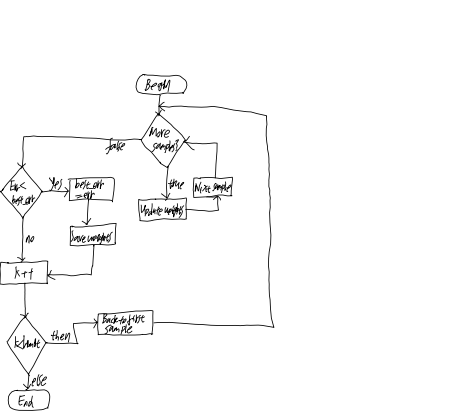 Begin
More
samples?
false
true
Next sample
Update weights
Err<
best_err
Yes
best_err
= err
Save weights
no
k++
k<limit
then
Back to first
sample
else
End